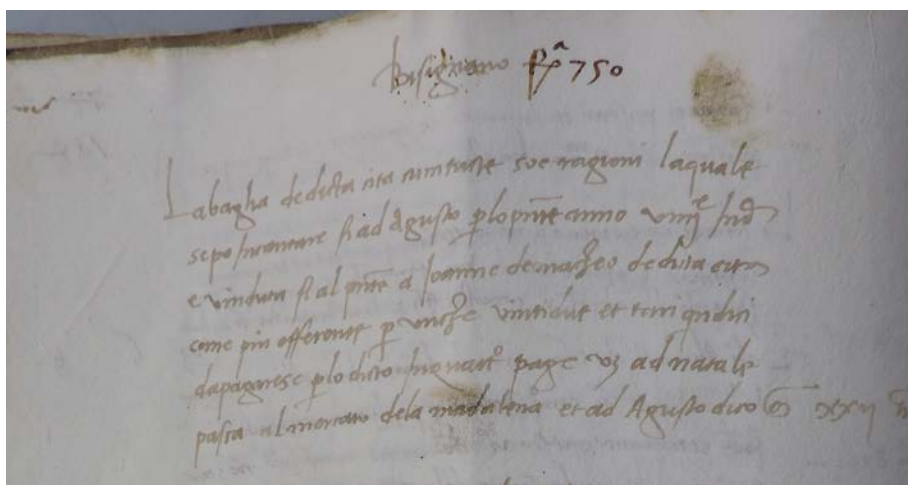 Bisignano 750
La baglia dedicta cita cum tucte soe ragioni laquale
sepo incantare fi ad Agusto plopnte anno Ind
e vinduta fi al pnte a Joanne dematheo dedicta
come piu offerente p unche vintidue et tari qindici
dapagarese plo dicto page ad natale
pasca al mercato dela madalena et ad Agusto dico xxij